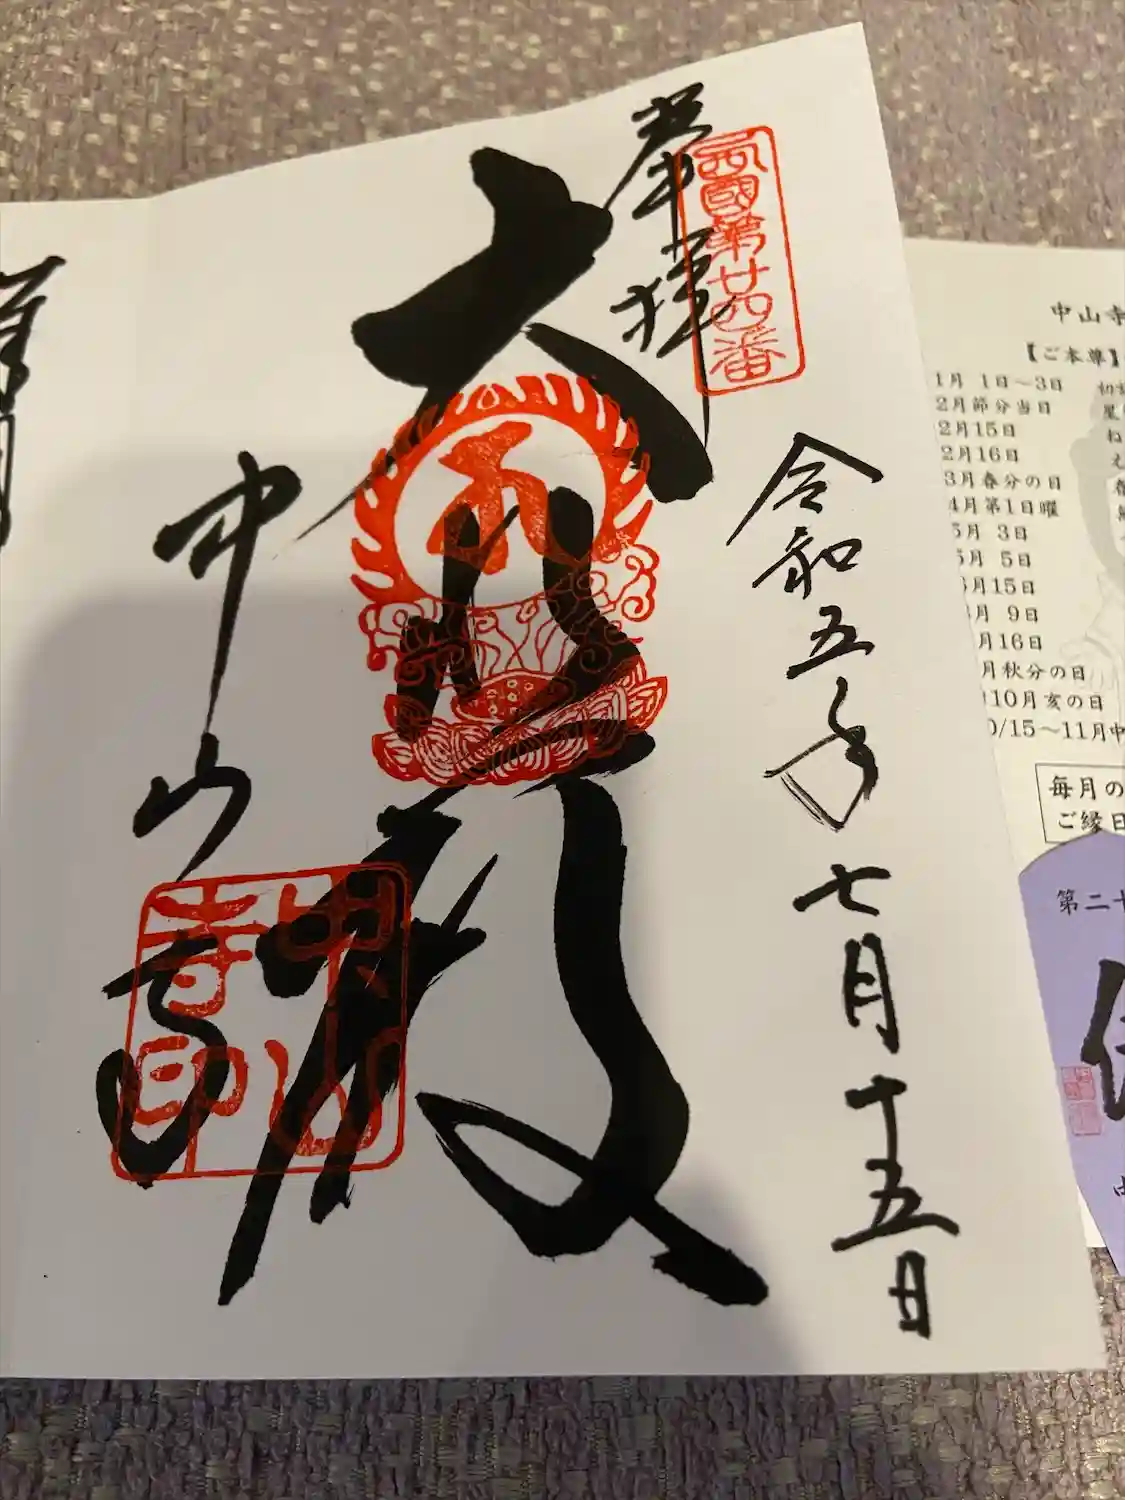 奉拝
西國第廿四番
令和五年七月十五日
大悲殿
中山寺
中山寺印
中山寺
【ご本尊】
1月 1日～3日
2月節分当日
2月15日
2月16日
3月春分の日
4月第1日曜
5月 3日
5月 5日
月15日
月 9日
月16日
月秋分の日
10月亥の日
0/15～11月中
毎月の
ご縁日
第二十